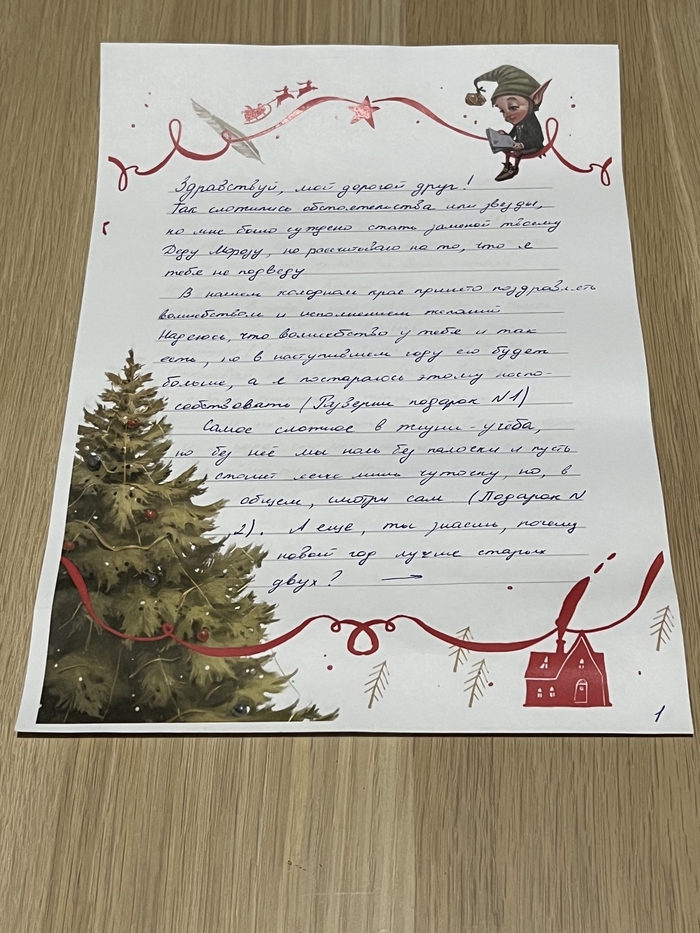 Здравствуй, мой дорогой друг!
Так сложились обстоятельства или звезды,
но мне было суждено стать заменой твоему
Деду Морозу, но рассчитываю на то, что я
тебя не подведу
В нашем холодном крае принято поздравлять
волшебством и исполнением желаний
Надеюсь, что волшебство у тебя и так
есть, но в наступившем году его будет
больше, а я постараюсь этому поспо-
собствовать (Разверни подарок N1)
Самое сложное в жизни - учеба,
но без неё мы ноль без палочки и пусть
стоит лишь чуточку, но, в
общем, смотри сам (Подарок N
2). А еще, ты знаешь, почему
новый год лучше старых
двух? →
1